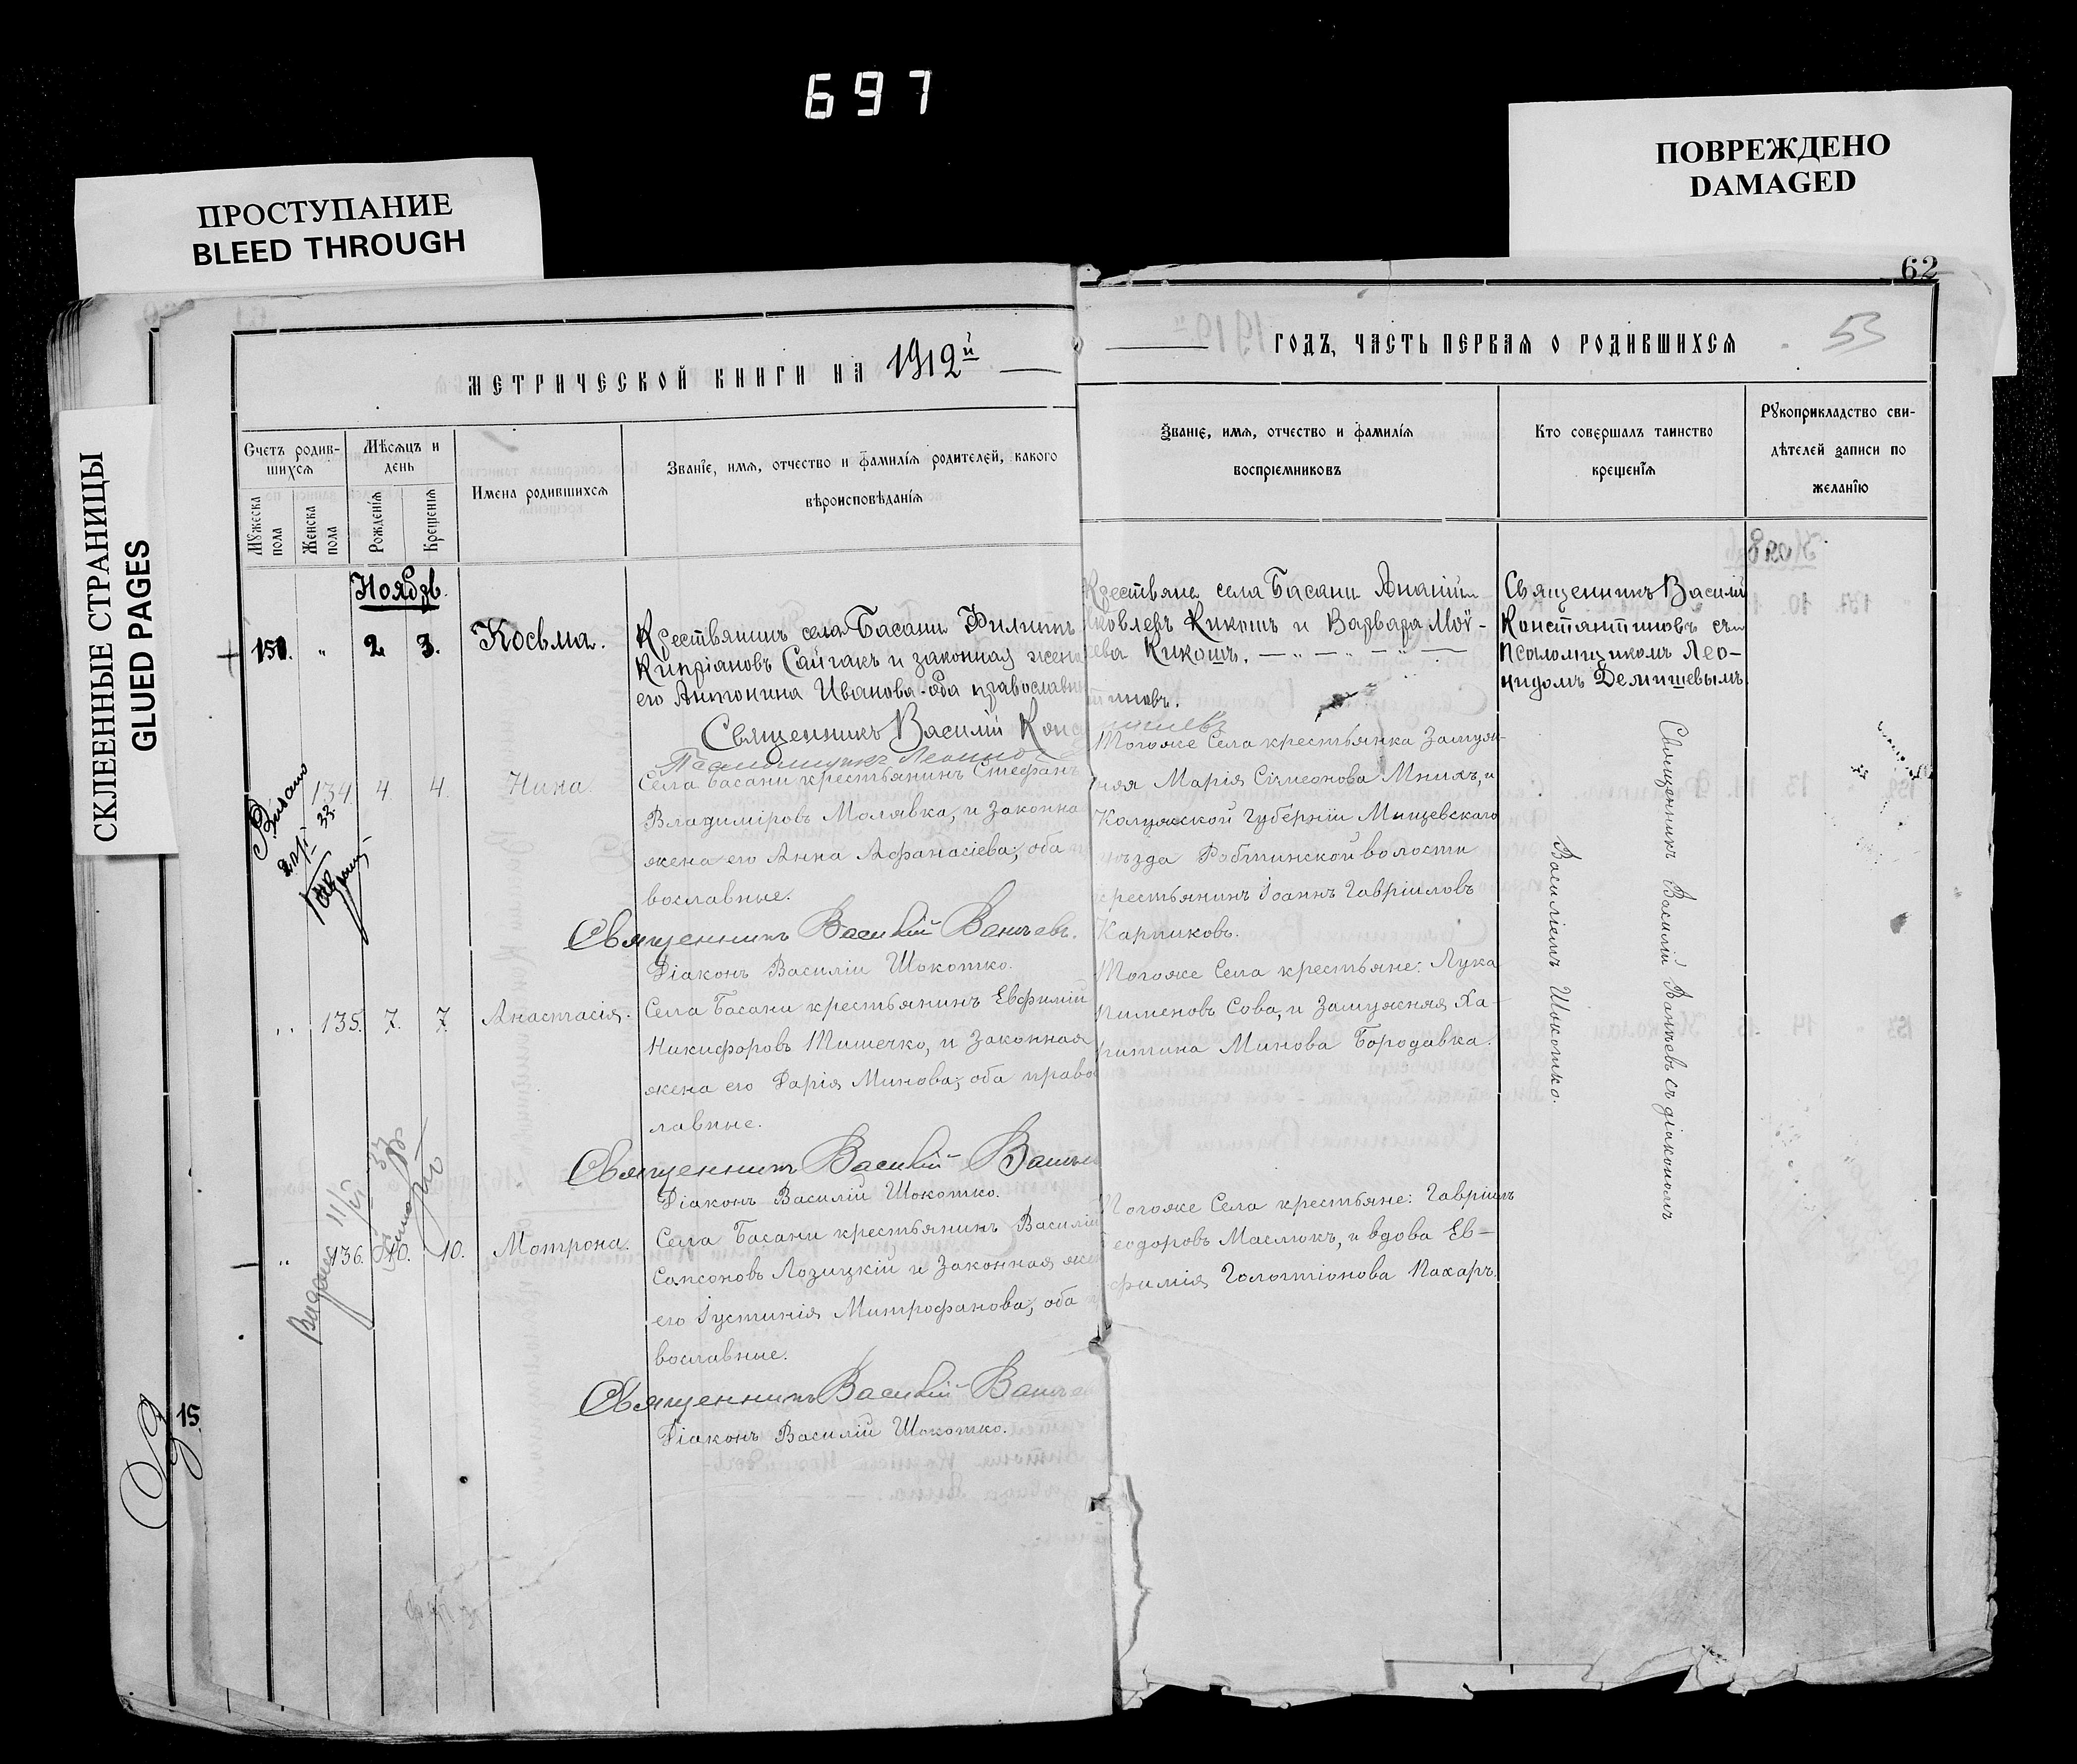 697
ПРОСТУПАНИЕ
BLEED THROUGH
ПОВРЕЖДЕНО
DAMAGED
СКЛЕЕННЫЕ СТРАНИЦЫ
GLUED PAGES
62
53
МЕТРИЧЕСКОЙ КНИГИ НА 1912й
ГОДЪ, ЧАСТЬ ПЕРВАЯ О РОДИВШИХСЯ
Счетъ родив-
шихся
Мужеска
пола
Женска
пола
Мѣсяцъ и
день
Рожденія
Крещенія
Имена родившихся
Званіе, имя, отчество и фамилія родителей, какого
вѣроисповѣданія
Званіе, имя, отчество и фамилія
воспріемниковъ
Кто совершалъ таинство
крещенія
Рукоприкладство сви-
дѣтелей записи по
желанію
Ноябрь
151. " 2 3. Косьма.
Крестьянинъ села Басани Филиппъ
Кипріановъ Сайгакъ и законная жена
его Антонина Иванова. оба православн
Священникъ Василій Конс
Псаломщикъ Леонид
Крестьяне села Басани Ананій
Яковлевъ Кикошъ и Варвара Мой-
сева Кикошъ.
тиновъ.
Священникъ Василій
Константиновъ съ
псаломщикомъ Лео-
нидомъ Демишевымъ
134. 4. 4. Нина.
Села Басани крестьянинъ Стефанъ
Владиміровъ Молявка, и Законна
жена его Анна Афанасіева; оба
вославные.
Священникъ Василій Ванчевъ.
Діаконъ Василій Шокотко.
Тогоже Села крестьянка Замуж-
няя Марія Сімеонова Мнихъ, и
Калужской Губерніи Мищевскаго
уѣзда волости
крестьянинъ Іоаннъ Гавріиловъ
Карпиковъ.
" 135. 7. 7. Анастасія.
Села Басани крестьянинъ Евфимій
Никифоровъ Тимечко, и Законная
жена его Дарія Минова; оба право
лавные.
Священникъ Василій Ванче
Діаконъ Василій Шокотко.
Тогоже Села крестьяне: Лука
Пименовъ Сова, и Замужняя Ха-
ритина Минова Бородавка.
" 136. 10. 10. Мотрона.
Села Басани крестьянинъ Василій
Сапсоновъ Лозицкій и Законная же
его Іустинія Митрофанова; оба
вославные.
Священникъ Василій Ванчев
Діаконъ Василій Шокотко.
Тогоже Села крестьяне: Гавріилъ
еодоровъ Маслюкъ, и вдова Ев-
фимія Галактіонова Пахаръ.
Священникъ Василій Ванчевъ съ діакономъ
Василіемъ Шокотко.
15.